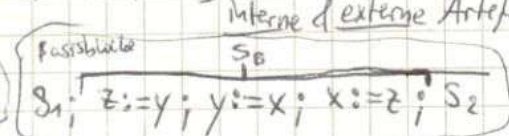 interne & externe Artef
Basisblöcke
S_B
S_1; z:=y; y:=x; x:=z; S_2